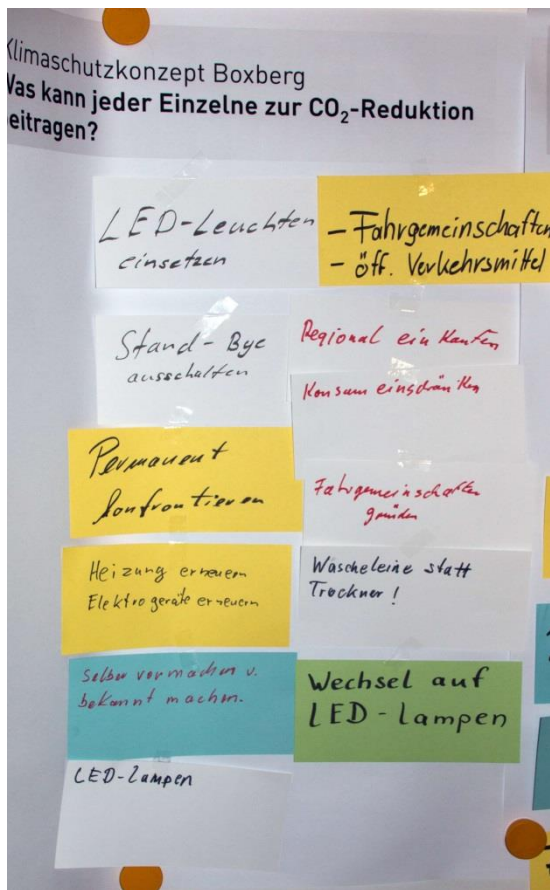 Klimaschutzkonzept Boxberg
Was kann jeder Einzelne zur CO₂-Reduktion
beitragen?
LED-Leuchten
einsetzen
- Fahrgemeinschaften
- öff. Verkehrsmittel
Stand-Bye
ausschalten
Regional einkaufen
Konsum einschränken
Permanent
konfrontieren
Fahrgemeinschaften
gründen
Heizung erneuern
Elektrogeräte erneuern
Wäscheleine statt
Trockner!
Selber vormachen u.
bekannt machen.
Wechsel auf
LED-Lampen
LED-Lampen